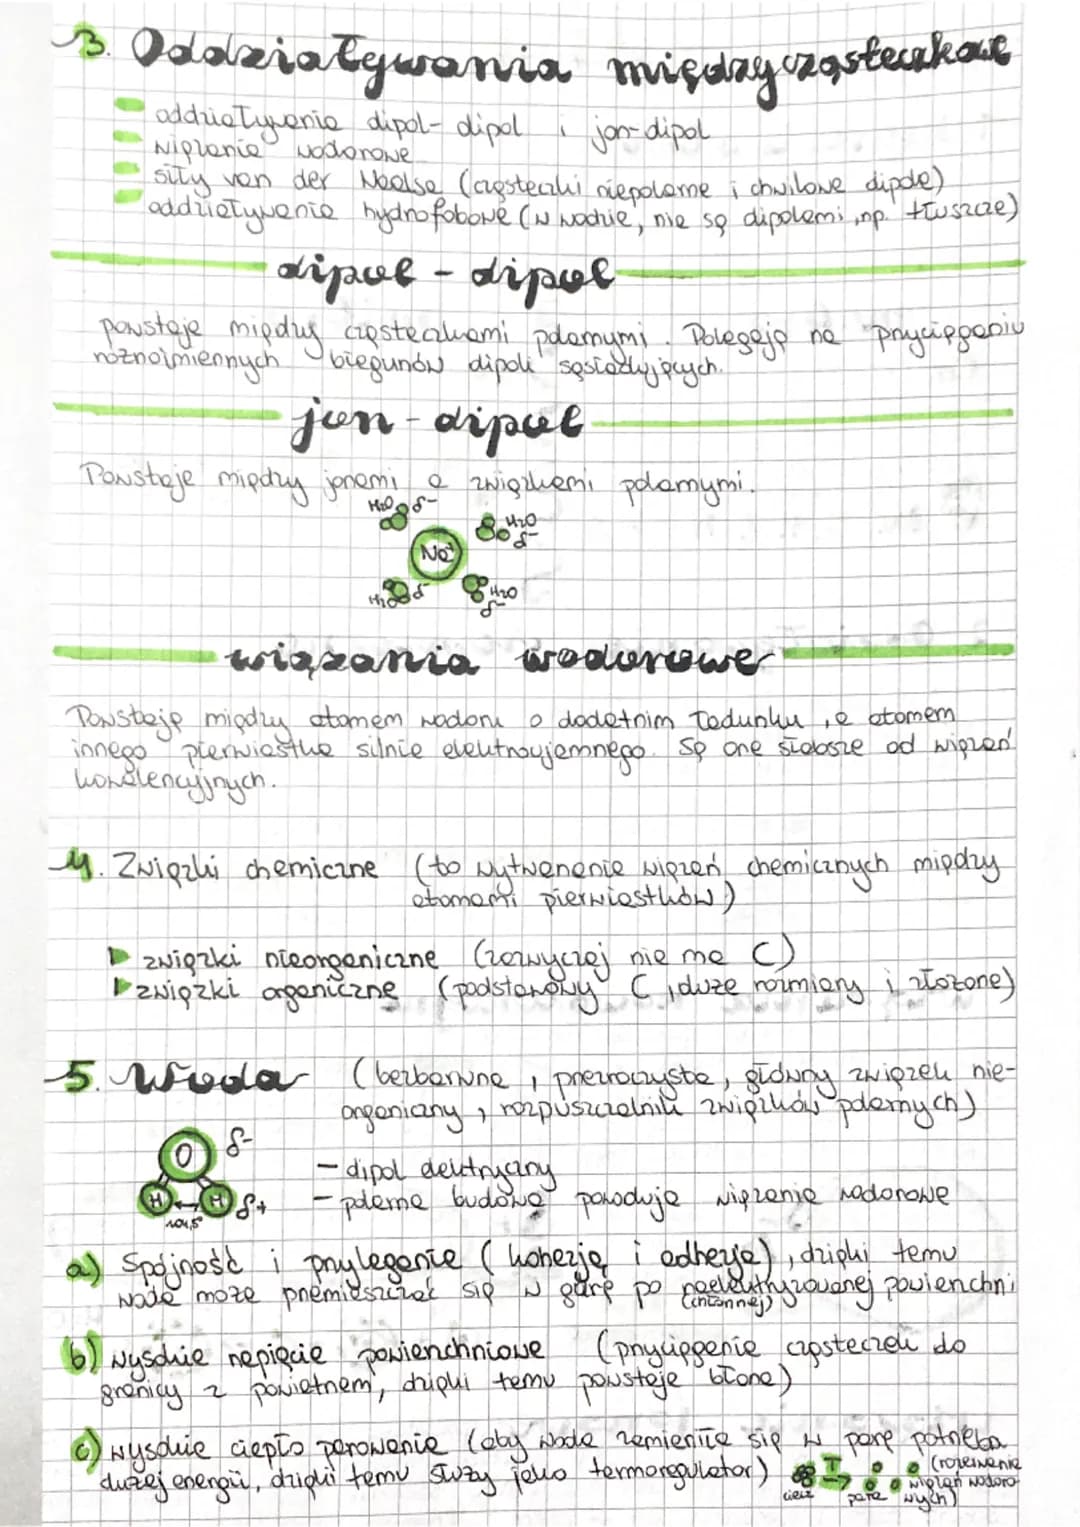 3. Oddziaływania międzycząsteczkowe
oddziaływania dipol-dipol i jon-dipol
wiązania wodorowe
siły van der Waalsa (cząsteczki niepolarne i chwilowe dipole)
oddziaływania hydrofobowe (w wodzie, nie są dipolami, np. tłuszcze)
dipol - dipol
powstaje między cząsteczkami polarnymi. Polegają na przyciąganiu
różnoimiennych biegunów dipoli sąsiadujących.
jon - dipol
Powstaje między jonami a związkami polarnymi.
H2O δ-
H2O
δ-
Na+
H2O δ-
H2O
δ-
wiązania wodorowe
Powstają między atomem wodoru o dodatnim ładunku, a atomem
innego pierwiastka silnie elektroujemnego. Są one słabsze od wiązań
kowalencyjnych.
4. Związki chemiczne (to wytworzenie wiązań chemicznych między
atomami pierwiastków)
związki nieorganiczne (zazwyczaj nie ma C)
związki organiczne (podstawowy C, duże rozmiary i złożone)
5. Woda (bezbarwna, przezroczysta, główny związek nie-
organiczny, rozpuszczalnik związków polarnych)
O δ-
H H δ+
104,5°
- dipol elektryczny
- polarna budowa powoduje wiązania wodorowe
a) Spójność i przyleganie (kohezja i adhezja), dzięki temu
woda może przemieszczać się w górę po naelektryzowanej powierzchni
b) wysokie napięcie powierzchniowe (przyciąganie cząsteczek do
granicy z powietrzem, dzięki temu powstaje błona)
c) wysokie ciepło parowania (aby woda zamieniła się w parę potrzeba
dużej energii, dzięki temu służy jako termoregulator)
T
(rozerwanie
wiązań wodoro-
wych)
ciecz
para